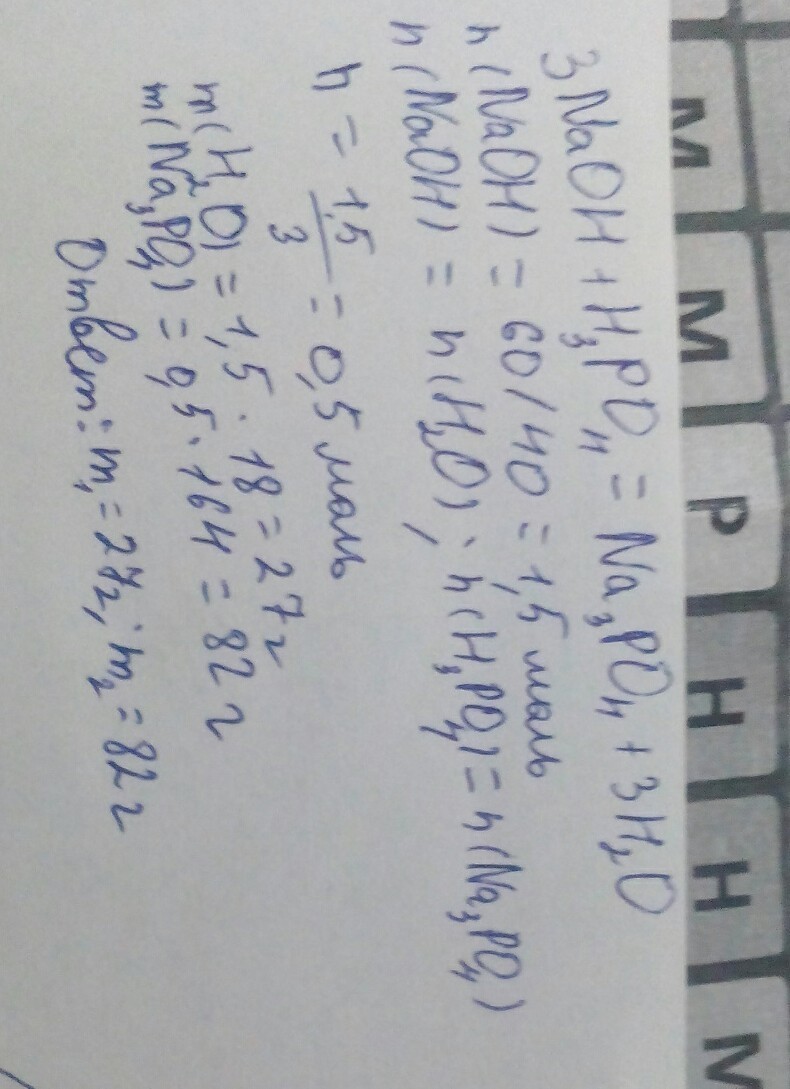 М М Р Н Н М
3NaOH + H₃PO₄ = Na₃PO₄ + 3H₂O
n(NaOH) = 60/40 = 1,5 моль
n(NaOH) = n(H₂O); n(H₃PO₄) = n(Na₃PO₄)
n = 1,5/3 = 0,5 моль
m(H₂O) = 1,5 · 18 = 27 г
m(Na₃PO₄) = 0,5 · 164 = 82 г
Ответ: m₁ = 27г; m₂ = 82 г